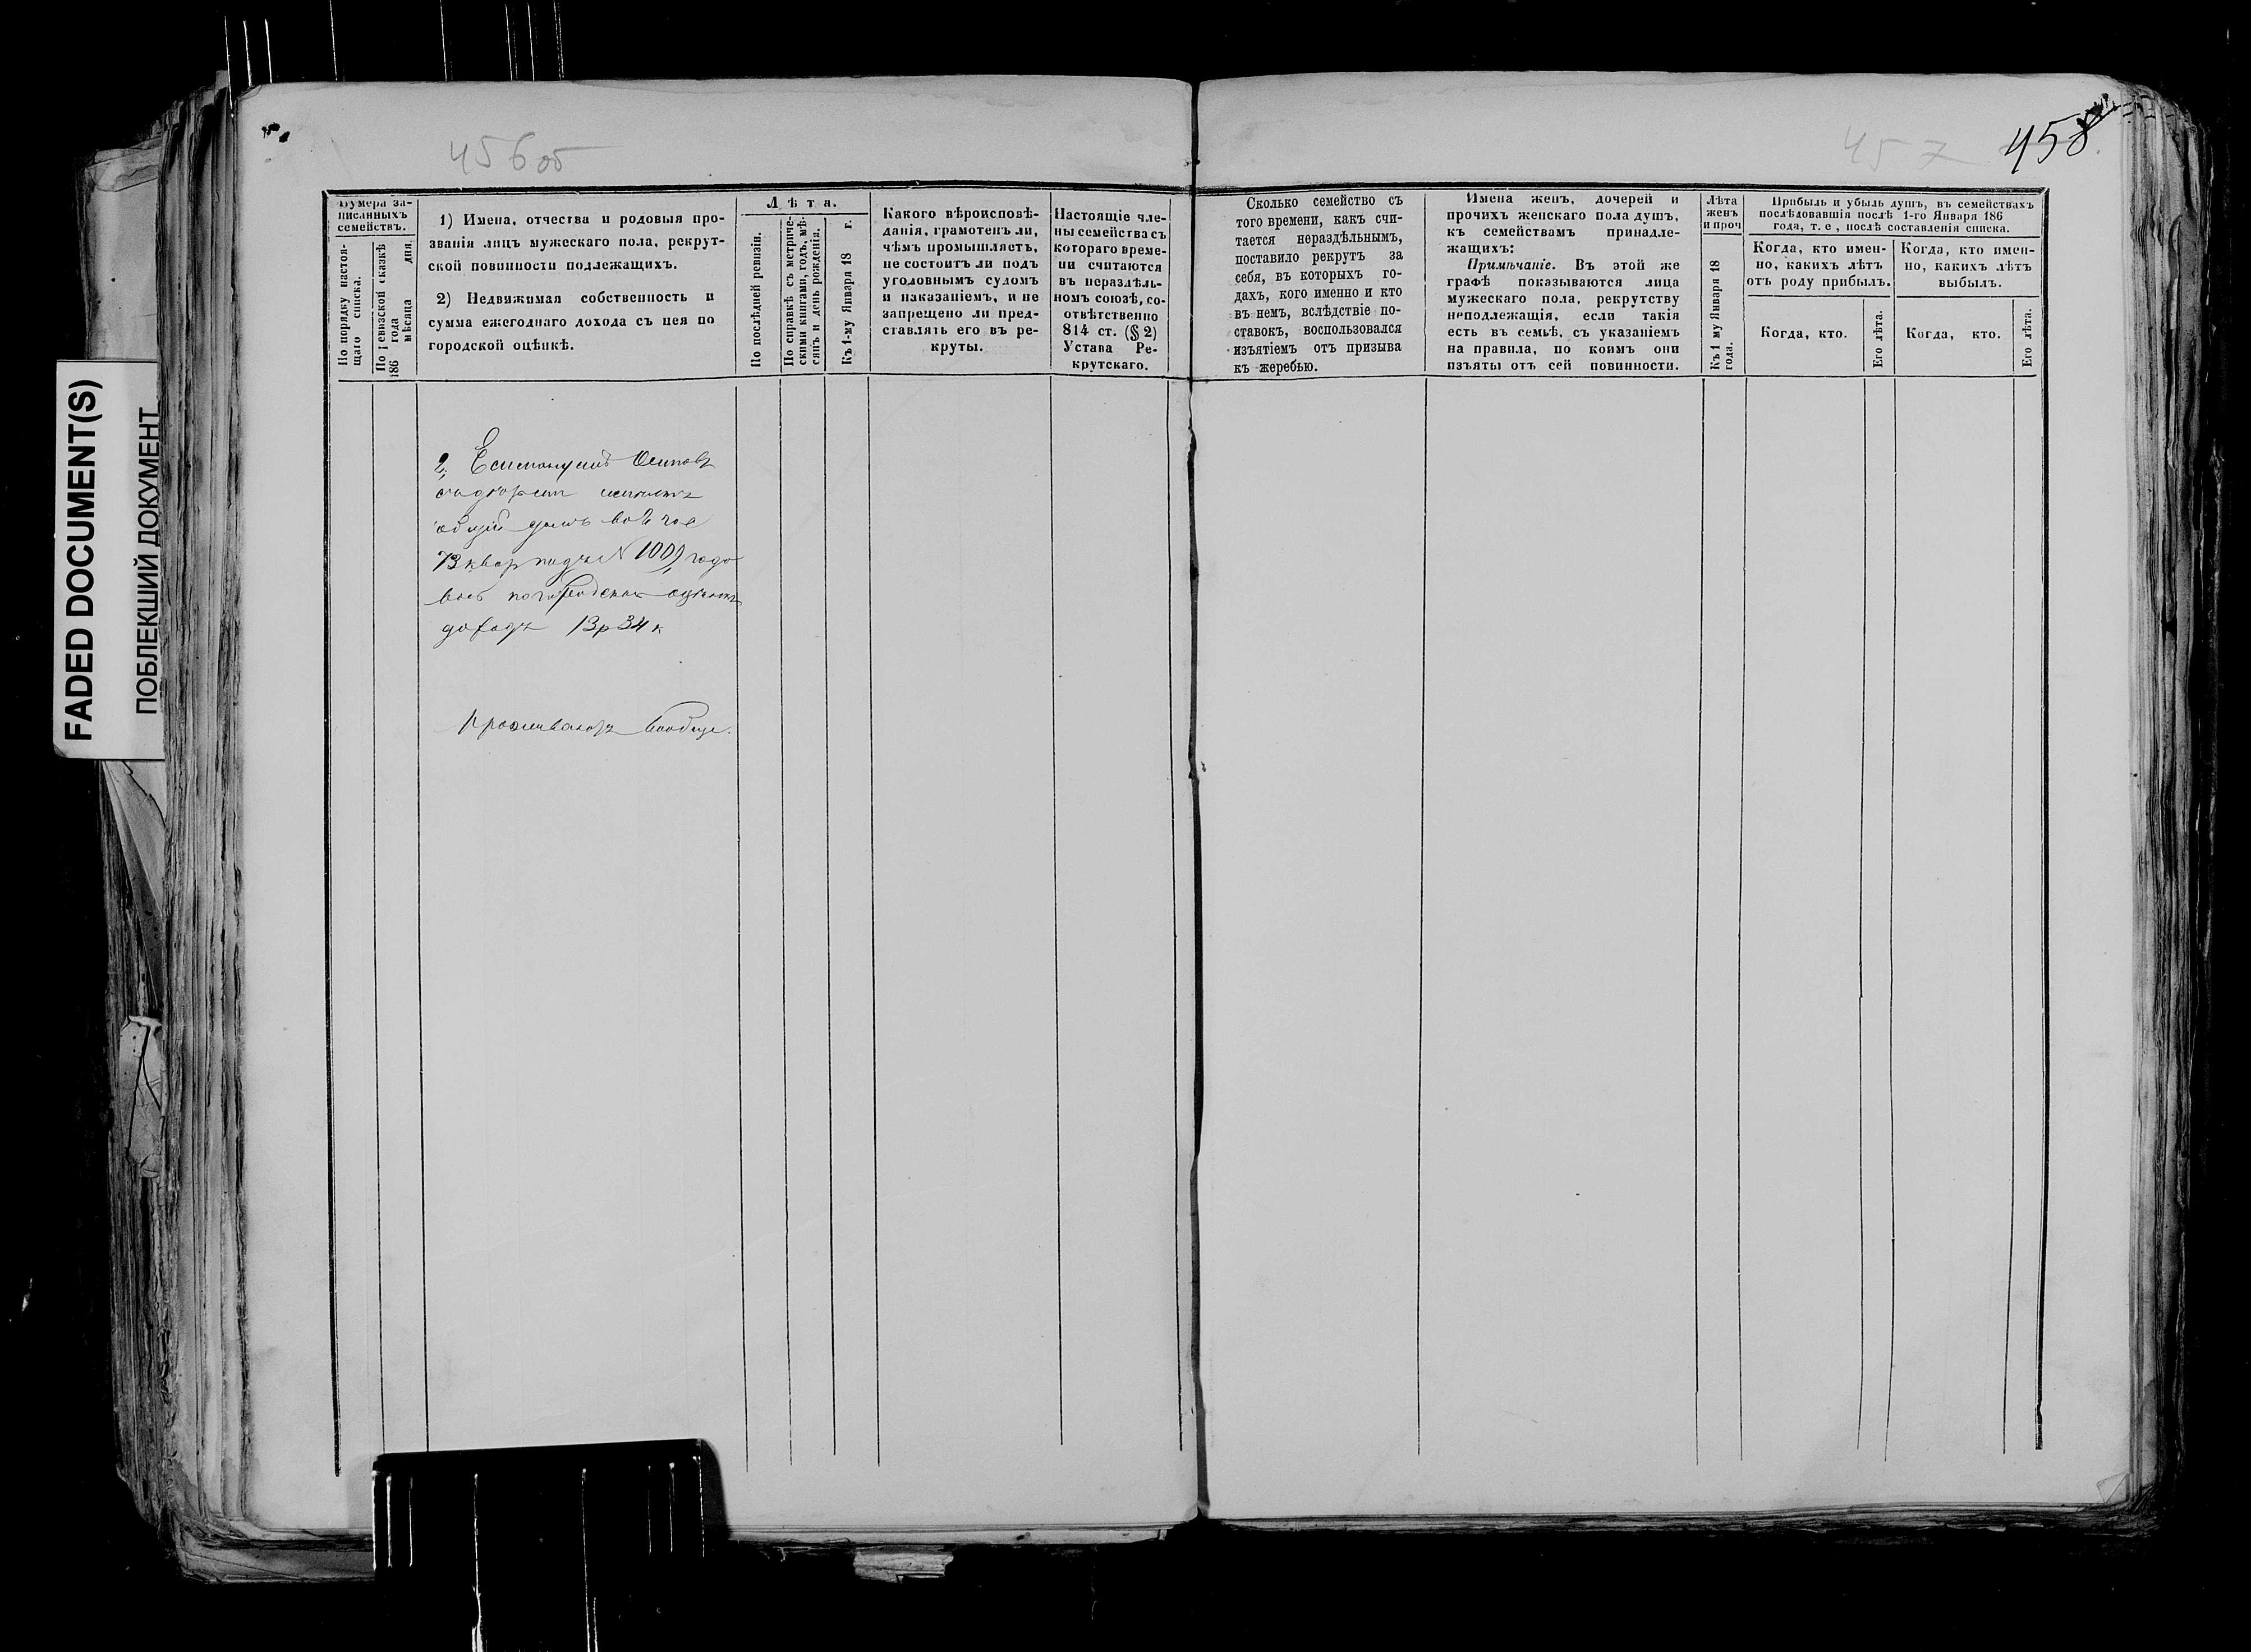 FADED DOCUMENT(S)
ПОБЛЕКШИЙ ДОКУМЕНТ
456об
457
458
Нумера за-
писанныхъ
семействъ.
По порядку настоя-
щаго списка.
По ревизской сказкѣ
186 года мѣсяца дня.
1) Имена, отчества и родовыя про-
званія лицъ мужескаго пола, рекрут-
ской повинности подлежащихъ.
2) Недвижимая собственность и
сумма ежегоднаго дохода съ нея по
городской оцѣнкѣ.
Лѣта.
По послѣдней ревизіи.
По справкѣ съ метриче-
скими книгами, годъ, мѣ-
сяцъ и день рожденія.
Къ 1-му Января 18 г.
Какого вѣроисповѣ-
данія, грамотенъ ли,
чѣмъ промышляетъ,
не состоитъ ли подъ
уголовнымъ судомъ
и наказаніемъ, и не
запрещено ли пред-
ставлять его въ ре-
круты.
Настоящіе чле-
ны семейства съ
котораго време-
ни считаются
въ нераздѣль-
номъ союзѣ, со-
отвѣтственно
814 ст. (§ 2)
Устава Ре-
крутскаго.
Сколько семейство съ
того времени, какъ счи-
тается нераздѣльнымъ,
поставило рекрутъ за
себя, въ которыхъ го-
дахъ, кого именно и кто
въ немъ, вслѣдствіе по-
ставокъ, воспользовался
изъятіемъ отъ призыва
къ жеребью.
Имена женъ, дочерей и
прочихъ женскаго пола душъ,
къ семействамъ принадле-
жащихъ:
Примѣчаніе. Въ этой же
графѣ показываются лица
мужескаго пола, рекрутству
неподлежащія, если такія
есть въ семьѣ, съ указаніемъ
на правила, по коимъ они
изъяты отъ сей повинности.
Лѣта
женъ
и проч
Къ 1 му Января 18
года.
Прибыль и убыль душъ, въ семействахъ
послѣдовавшія послѣ 1-го Января 186
года, т. е, послѣ составленія списка.
Когда, кто имен-
но, какихъ лѣтъ
отъ роду прибылъ.
Когда, кто имен-
но, какихъ лѣтъ
выбылъ.
Когда, кто.
Его лѣта.
Когда, кто.
Его лѣта.
2, Осиповъ
общій домъ во 2 час
73 квар подъ N 1009 годо
вой по городской оцѣнкѣ
доходъ 13 р 34 к
Проживаютъ вообще.